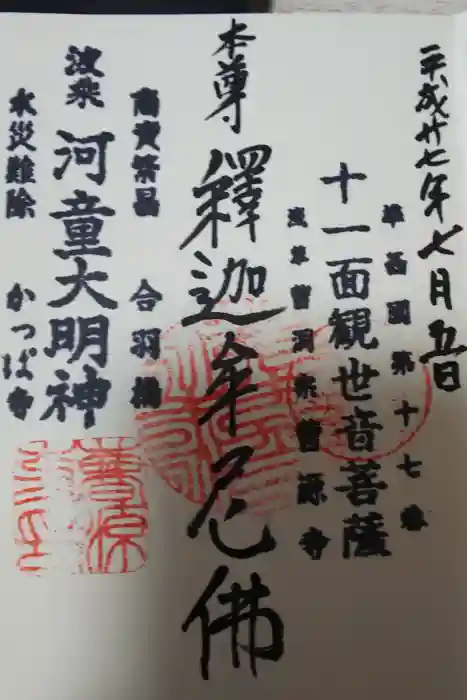 平成廿七年七月五日
準西國第十七番
十一面観世音菩薩
浅草曹洞宗曹源寺
本尊 釋迦牟尼佛
商賣繁昌 合羽橋
波乘 河童大明神
水災難除 かっぱ寺